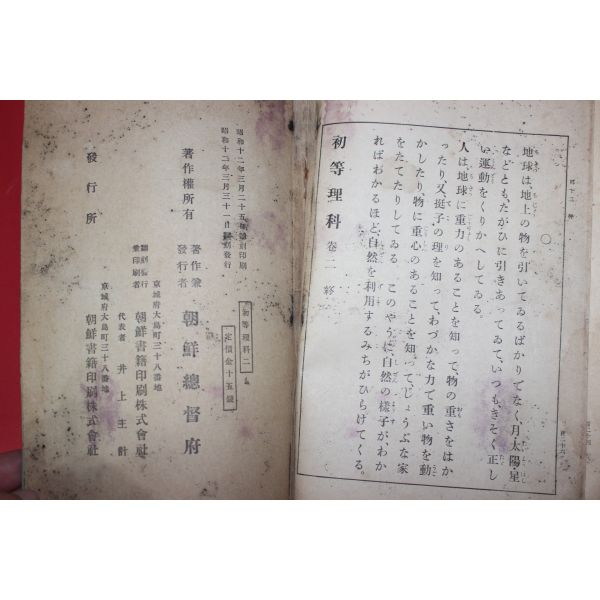 〇
地球は地上の物を引いてゐるばかりでなく、月太陽・星
などとも、たがひに引きあってゐて、いつもきそく正し
い運動をくりかへしてゐる。
人は地球に重力のあることを知って、物の重さをはか
ったり、又挺子の理を知って、わづかな力で重い物を動
かしたり、物に重心のあることを知って、じょうぶな家
をたてたりしてゐる。このやうに、自然の様子が、わか
ればわかるほど、自然を利用するみちがひらけてくる。
初等理科 巻二 終
昭和十二年三月二十五日翻刻印刷
昭和十二年三月三十一日翻刻發行
初等理科二
定價金十五錢
著作權所有
著作兼發行者 朝鮮總督府
京城府大島町三十八番地
翻刻發行兼印刷者 朝鮮書籍印刷株式會社
代表者 井上主計
京城府大島町三十八番地
發行所 朝鮮書籍印刷株式會社